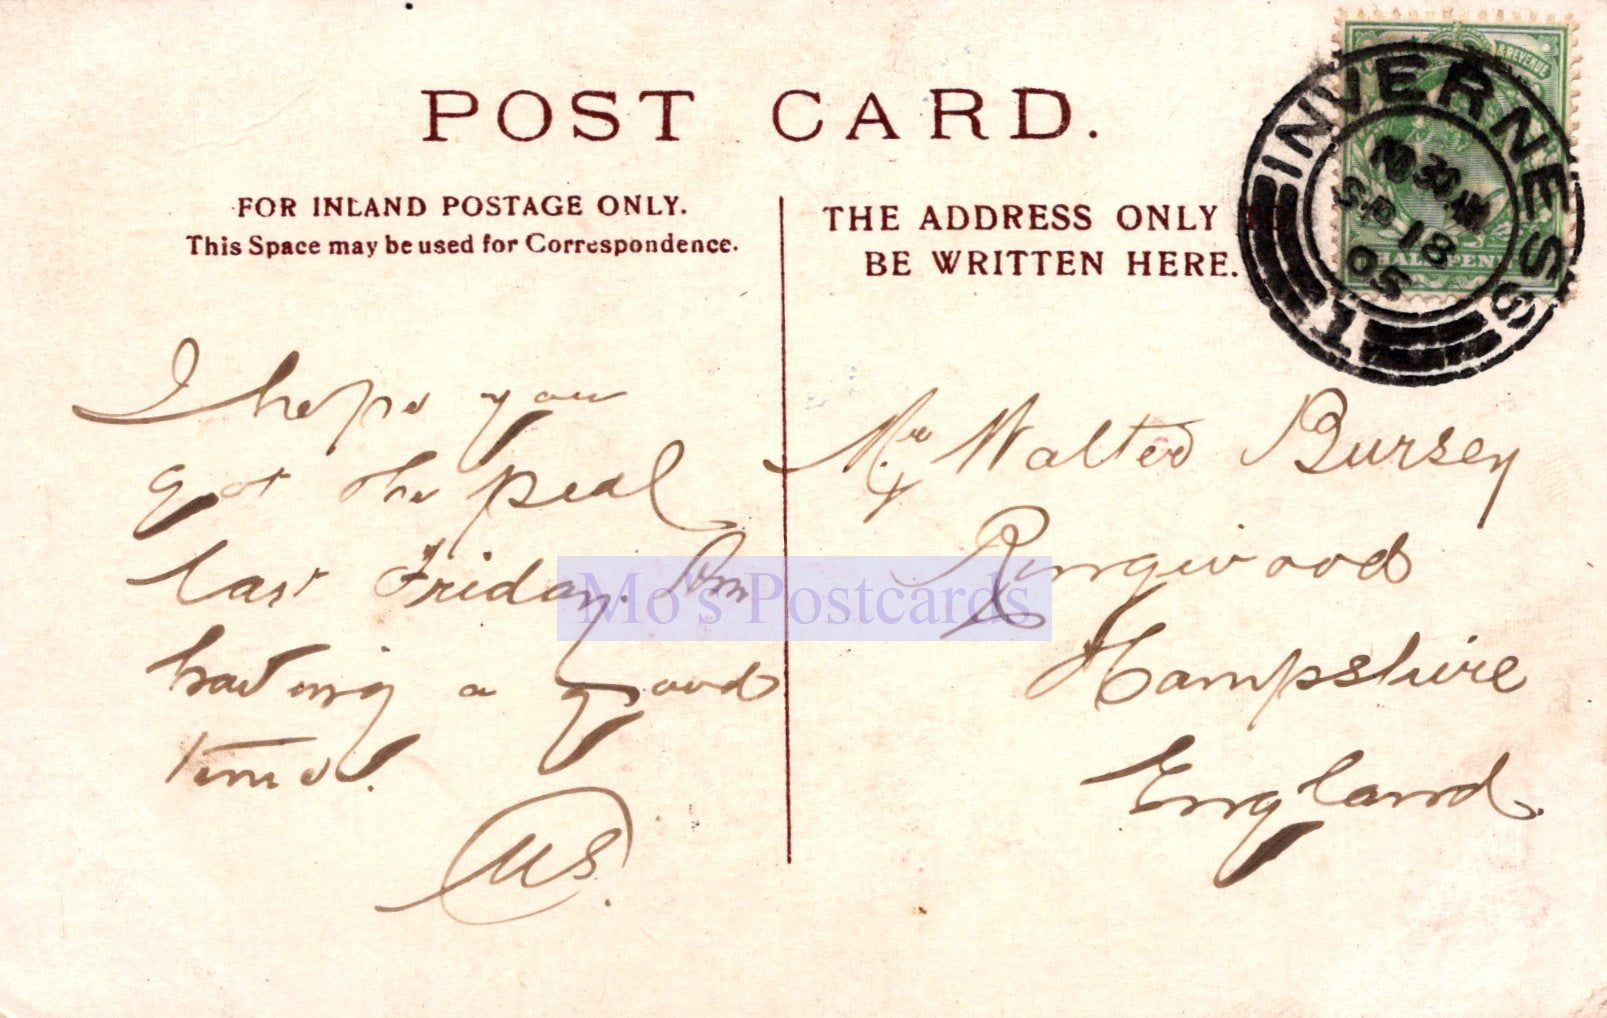 POST CARD.
FOR INLAND POSTAGE ONLY.
This Space may be used for Correspondence.
THE ADDRESS ONLY
BE WRITTEN HERE.
& REVENUE
HALFPENNY
INVERNESS
10 30 AM
SP 18
05
I hope you
got the peal
last Friday. Am
having a good
time.
Mr Walter Bursey
Ringwood
Hampshire
England.
Mo's Postcards